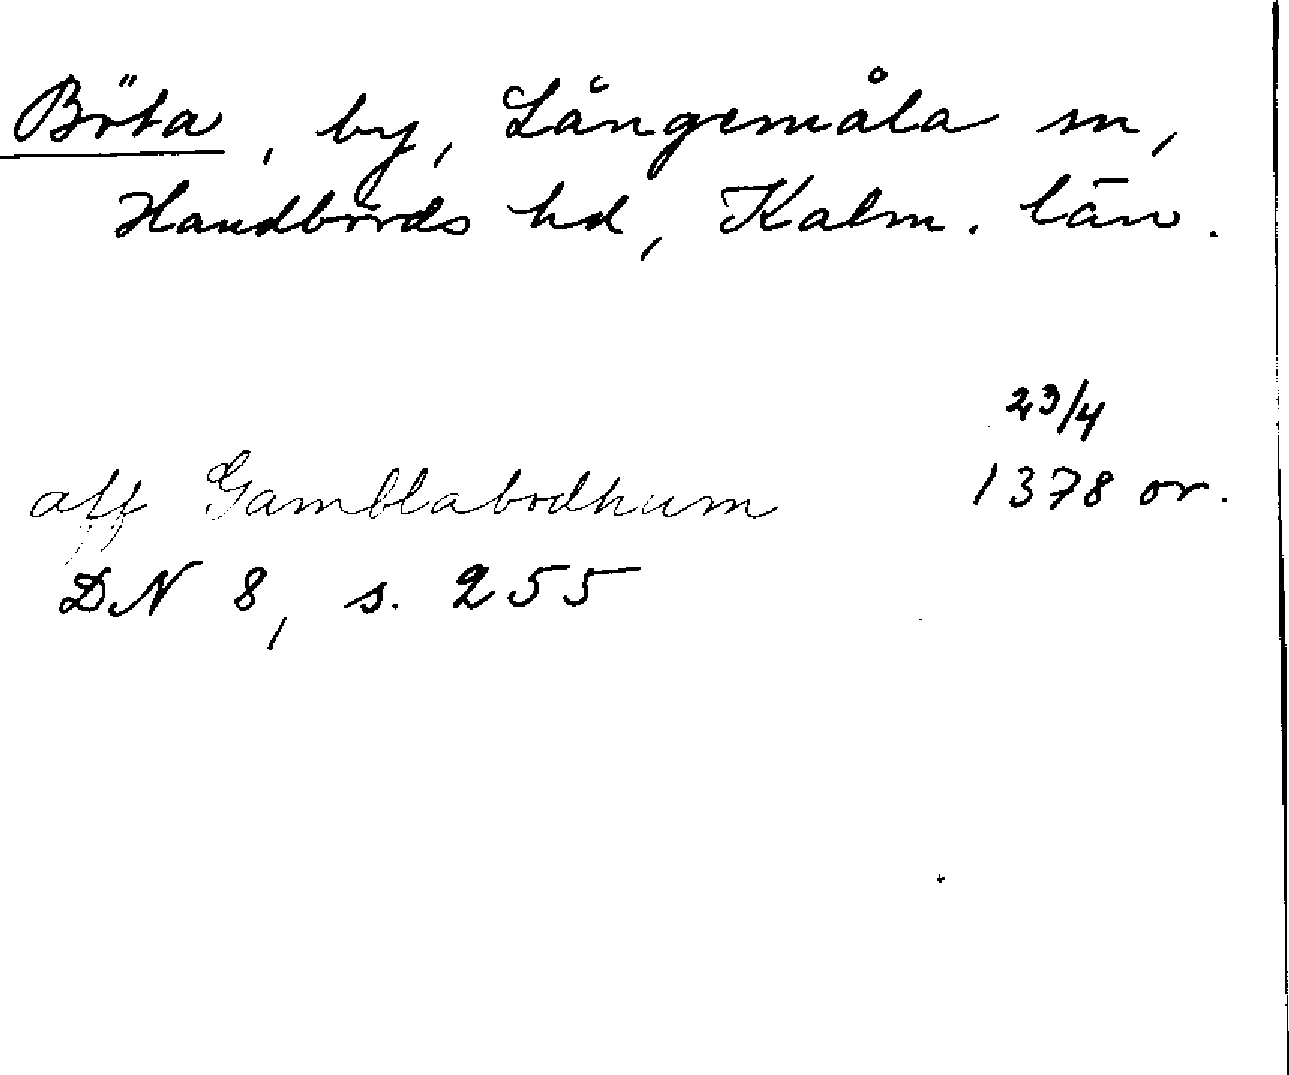 Böta, by, Långemåla sn,
Handbörds hd, Kalm. län.
23/4
aff Gamblabodhum 1378 or.
DN 8, s. 255